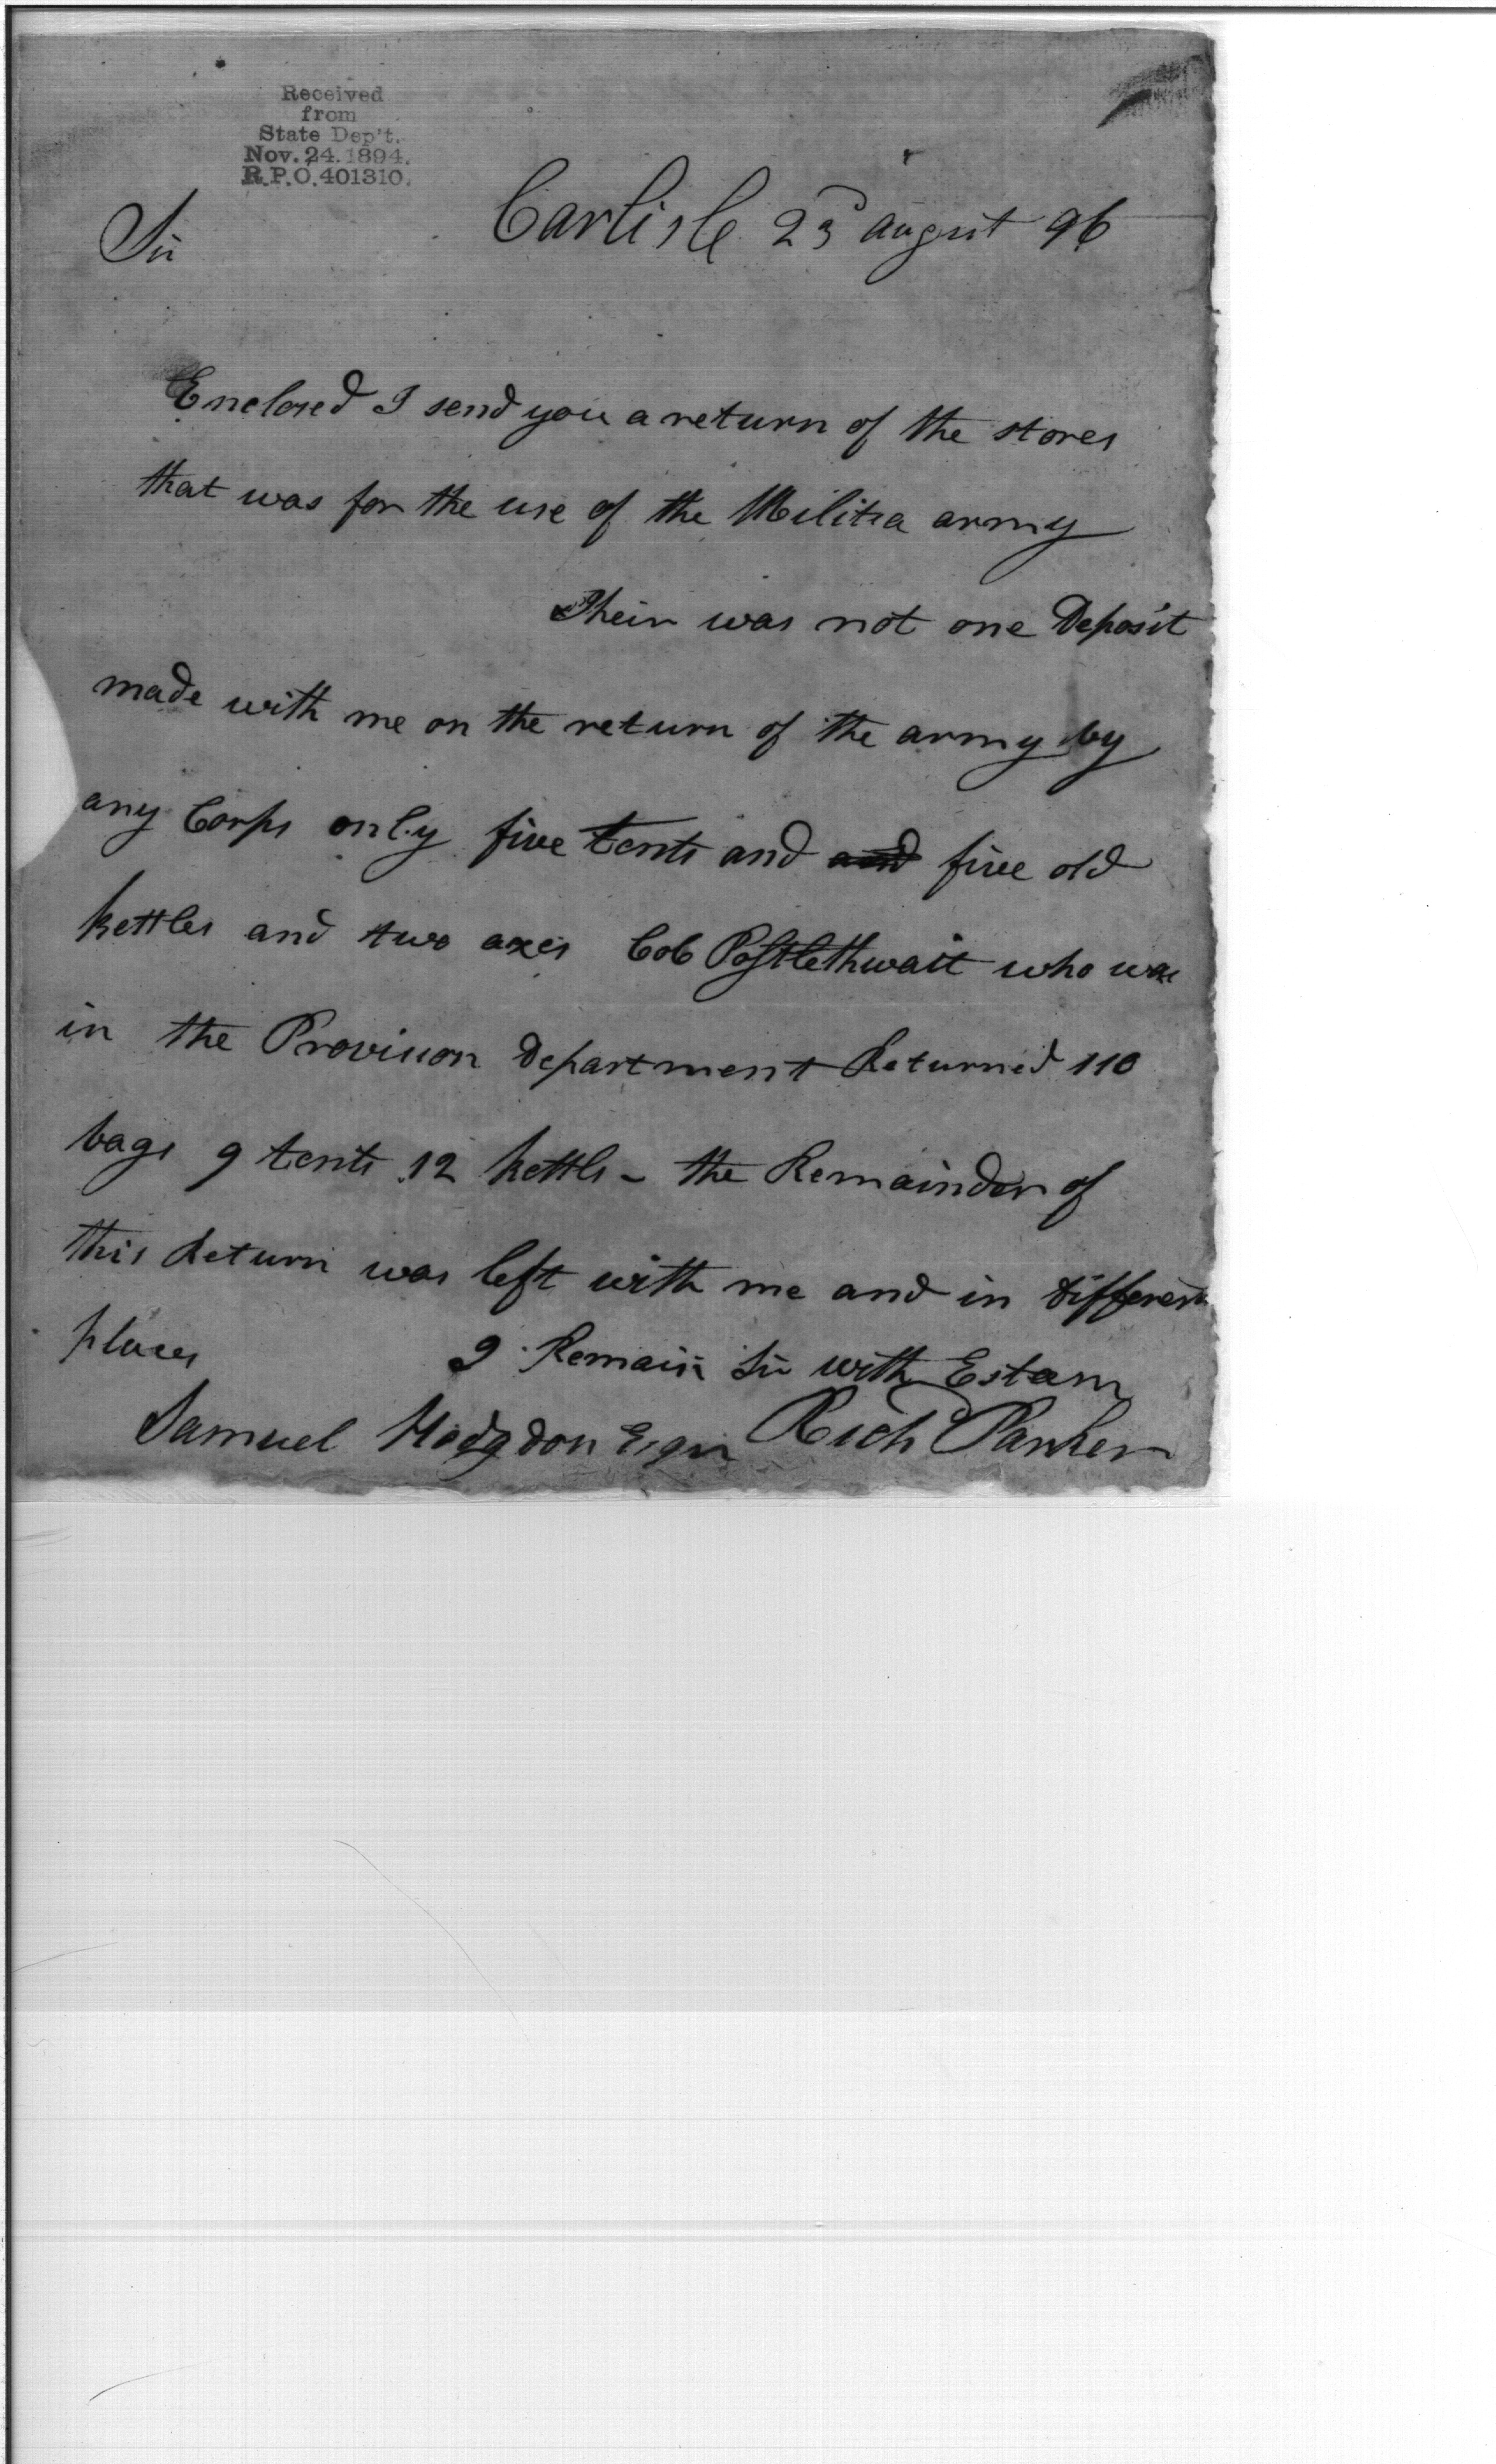 Received
from
State Dep't.
Nov. 24. 1894.
R.P.O. 401310.
Carlisle 23d august 96
Sir
Enclosed I send you a return of the stores
that was for the use of the Militia army
Their was not one Deposit
made with me on the return of the army by
any Corps only five tents and and five old
kettles and two axes Col Postlethwait who was
in the Provision Department Returned 110
bags 9 tents 12 kettls - the Remainder of
this Return was left with me and in different
places
I Remain Sir with Estam
Samuel Hodgdon Esqr Richd Parker